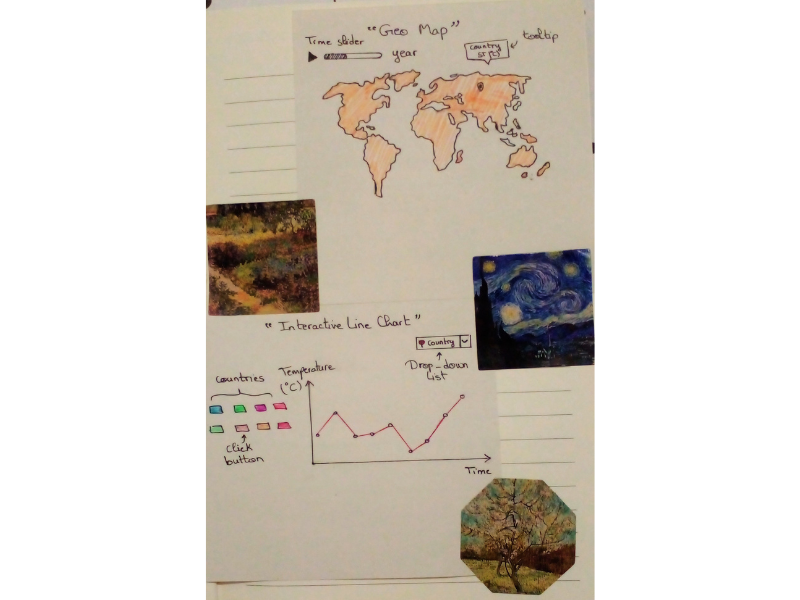 "Geo Map"
Time slider
year
country
5T(°C)
tooltip
"Interactive Line Chart"
country
Drop-down
list
countries
Temperature
(°C)
Click
button
Time